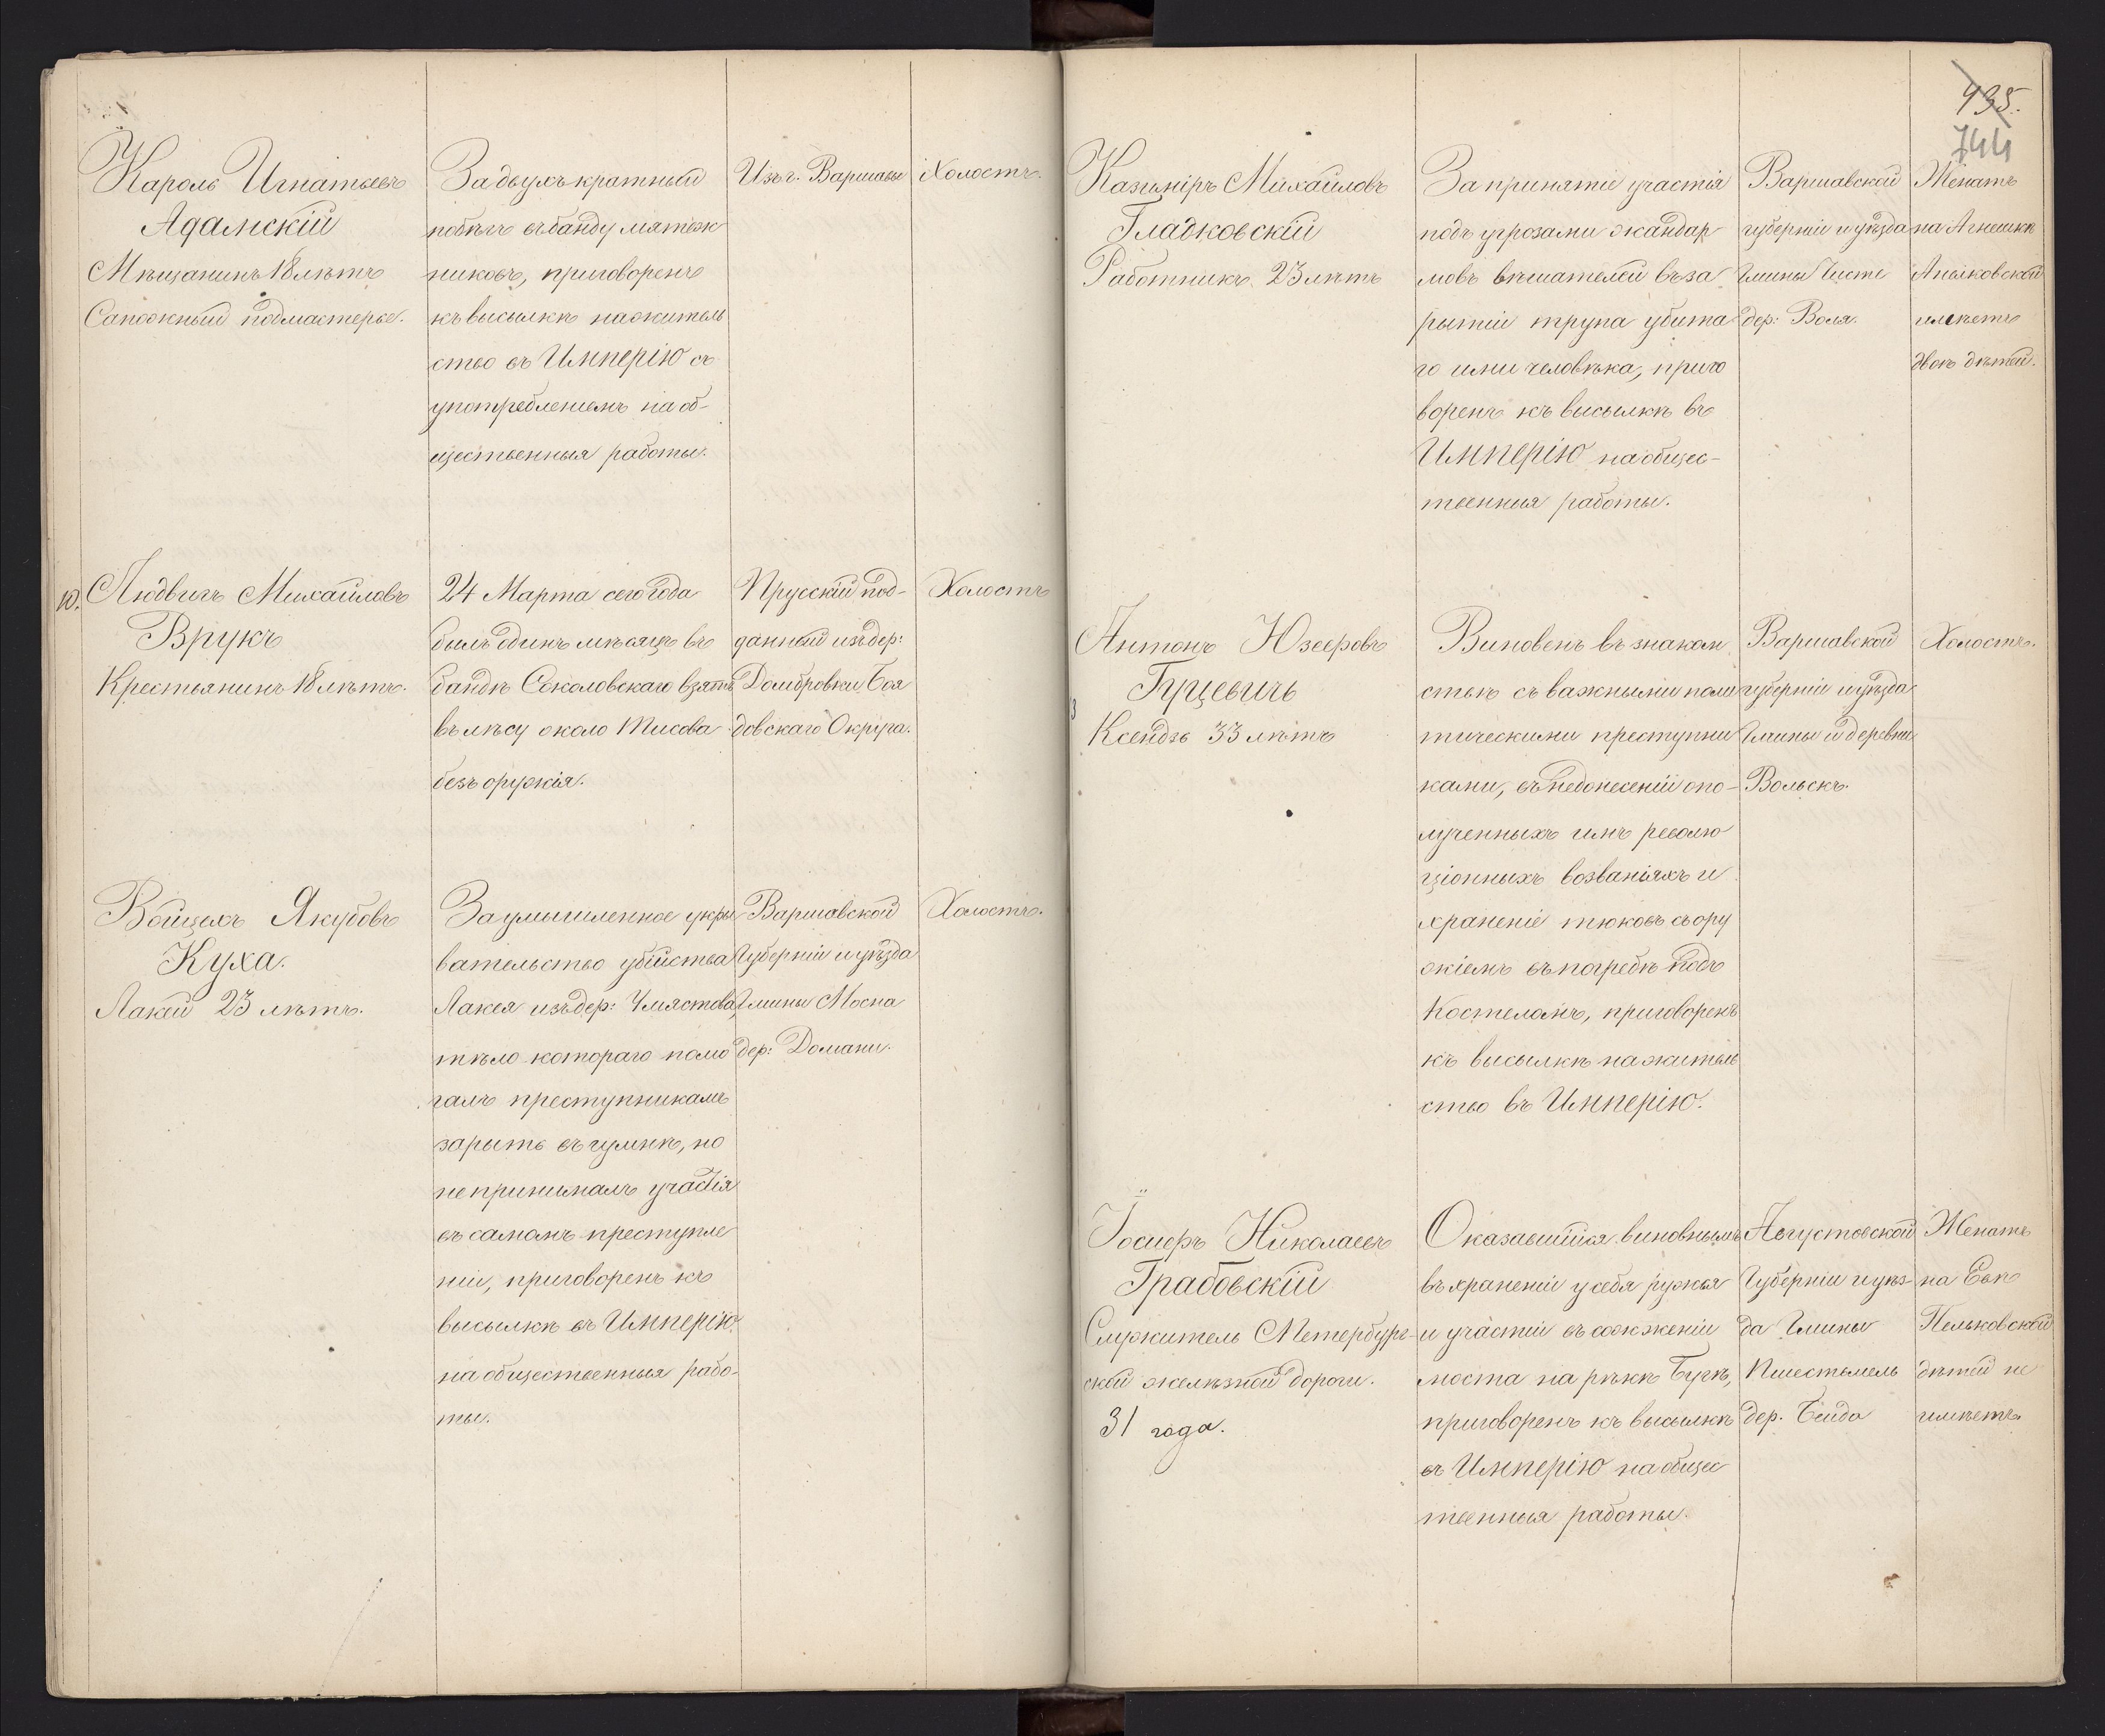 Кароль Игнатьевъ
Адамскій
Мѣщанинъ 18 лѣтъ
Сапожный подмастерье.
За двухъ кратный
побѣгъ въ банду мятеж
никовъ, приговоренъ
къ высылкѣ на житель
ство въ Имперію съ
употребленіемъ на об-
щественныя работы.
Изъ г. Варшавы
Холостъ.
10.
Людвигъ Михайловъ
Врукъ
Крестьянинъ 18 лѣтъ.
24 Марта сего года
былъ одинъ мѣсяцъ въ
бандѣ Соколовскаго взятъ
въ лѣсу около Тисова
безъ оружія.
Прусскій под-
данный изъ дер:
Домбровки Боя
довскаго Округа.
Холостъ
Войцехъ Якубовъ
Куха.
Лакей 23 лѣтъ.
За умышленное укры
вательство убійства
Лакея изъ дер: Умястова,
тѣло котораго помо
галъ преступникамъ
зарыть въ гумнѣ, но
не принималъ участія
въ самомъ преступле
ніи, приговоренъ къ
высылкѣ въ Имперію
на общественныя рабо-
ты.
Варшавской
Губерніи и уѣзда
Гмины Мосна
дер: Домани.
Холостъ.
435.
744
Казиміръ Михайловъ
Гладковскій
Работникъ 23 лѣтъ
За принятіе участія
подъ угрозами жандар
мовъ вѣшателей въ за
рытіи трупа убита
го ими человѣка, приго
воренъ къ высылкѣ въ
Имперію на общес-
твенныя работы.
Варшавской
губерніи и уѣзда
Гмины Чисте
дер: Воля.
Женатъ
на Агнешкѣ
имѣетъ
двоѣ дѣтей.
3
Антонъ Юзефовъ
Гуцевичъ
Ксендзъ 33 лѣтъ
Виновенъ въ знаком
ствѣ съ важными поли
тическими преступни
ками, въ недонесеніи о по-
лученныхъ имъ револю
ціонныхъ воззваніяхъ и
храненіе тюковъ съ ору
жіемъ въ погребѣ подъ
Костеломъ, приговоренъ
къ высылкѣ на житель
ство въ Имперію.
Варшавской
губерніи и уѣзда
Гмины и деревни
Вольскъ.
Холостъ.
Іосифъ Николаевъ
Грабовскій
Служитель СПетербург-
ской желѣзной дороги.
31 года.
Оказавшійся виновнымъ
въ храненіи у себя ружья
и участіи въ сожженіи
моста на рѣкѣ Бугѣ,
приговоренъ къ высылкѣ
въ Имперію на общес
твенныя работы.
Августовской
Губерніи и уѣз-
да Гмины
дер.
Женатъ
на Евѣ
Пельковской
дѣтей не
имѣетъ